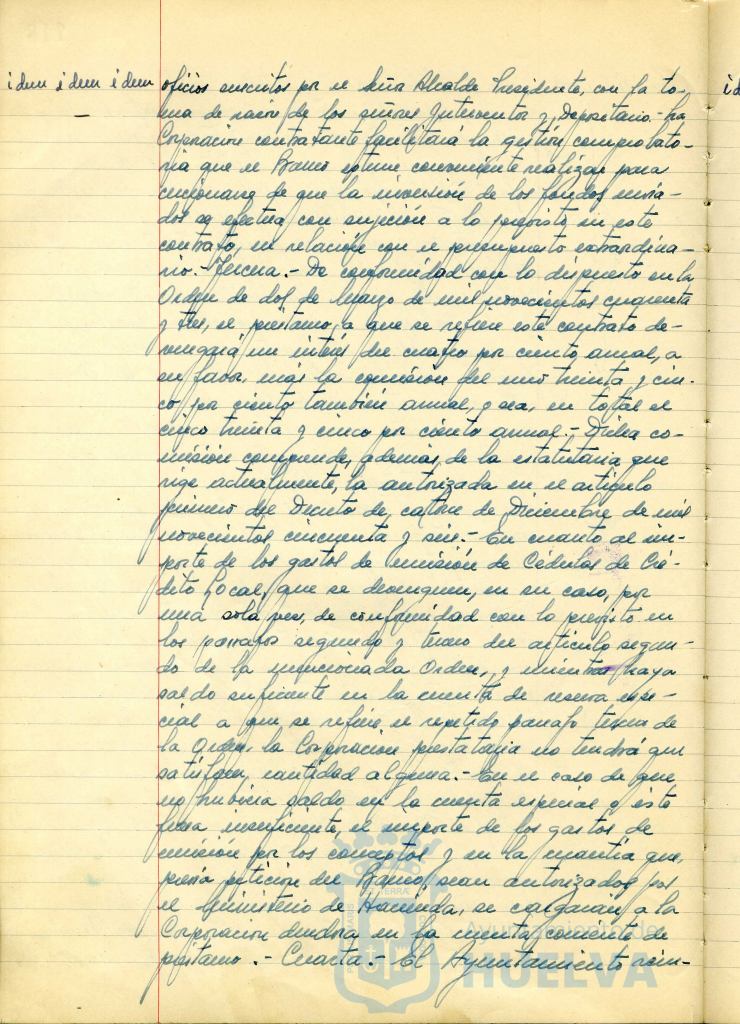 idem idem idem
oficios suscritos por el Señor Alcalde Presidente, con la to-
ma de razón de los señores Interventor y Depositario.- La
Corporación contratante facilitará la gestión comprobato-
ria que el Banco estime conveniente realizar para
cerciorarse de que la inversión de los fondos envia-
dos se efectua con sujeción a lo previsto en este
contrato, en relación con el presupuesto extraordina-
rio.- Tercera.- De conformidad con lo dispuesto en la
Orden de dos de Marzo de mil novecientos cincuenta
y tres, el préstamo a que se refiere este contrato de-
vengará un interés del cuatro por ciento anual, a
su favor, más la comisión del uno treinta y cin-
co por ciento también anual, o sea, en total el
cinco treinta y cinco por ciento anual.- Dicha co-
misión comprende, además de la estatutaria que
rige actualmente, la autorizada en el artículo
primero del Decreto de catorce de Diciembre de mil
novecientos cincuenta y seis.- En cuanto al im-
porte de los gastos de emisión de Cédulas de Cré-
dito Local, que se devenguen, en su caso, por
una sola vez, de conformidad con lo previsto en
los parrafos segundo y tercero del artículo segun-
do de la mencionada Orden, y mientras haya
saldo suficiente en la cuenta de reserva espe-
cial a que se refiere el repetido parrafo tercero de
la Orden, la Corporación prestataria no tendrá que
satisfacer cantidad alguna.- En el caso de que
no hubiera saldo en la cuenta especial o éste
fuera insuficiente, el importe de los gastos de
emisión por los conceptos y en la cuantía que,
previa petición del Banco, sean autorizados por
el Ministerio de Hacienda, se cargarán a la
Corporación deudora en la cuenta corriente de
préstamo.- Cuarta.- El Ayuntamiento rein-
id
Ayuntamiento de
HUELVA